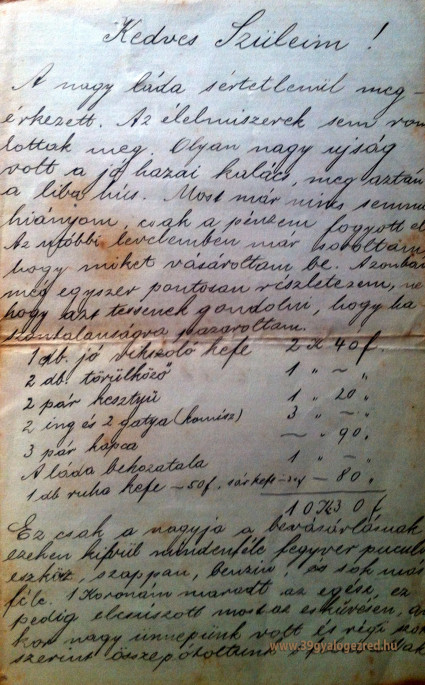 Kedves Szüleim!
A nagy láda sértetlenül meg-
érkezett. Az élelmiszerek sem rom
lottak meg. Olyan nagy ujság
volt a jó hazai kalács, meg aztán
a liba hús. Most már nincs semmi
hiányom, csak a pénzem fogyott el
Az utóbbi levelemben már soroltam,
hogy miket vásároltam be. Azonban
még egyszer pontosan részletezem, ne
hogy azt tessenek gondolni, hogy ha
szontalanságra pazaroltam.
1 db. jó vikszoló kefe 2 K 40 f.
2 db. törülköző 1 " — "
2 pár kesztyű 1 " 20 "
2 ing és 2 gatya (komisz) 3 " — "
3 pár kapca — " 90 "
A láda behozatala 1 " — "
1 db ruha kefe — 50 f, sárkefe — 80 "
10 K 30 f
Ez csak a nagyja a bevásárlásnak
ezeken kívül mindenféle fegyver puculó
eszköz, szappan, benzin, és sok más
féle. 1 Koronám maradt az egész, ez
pedig elcsúszott most az esküvésen, a
kor nagy ünnepünk volt és régi szok
szerint összepótoltunk
www.39gyalogezred.hu